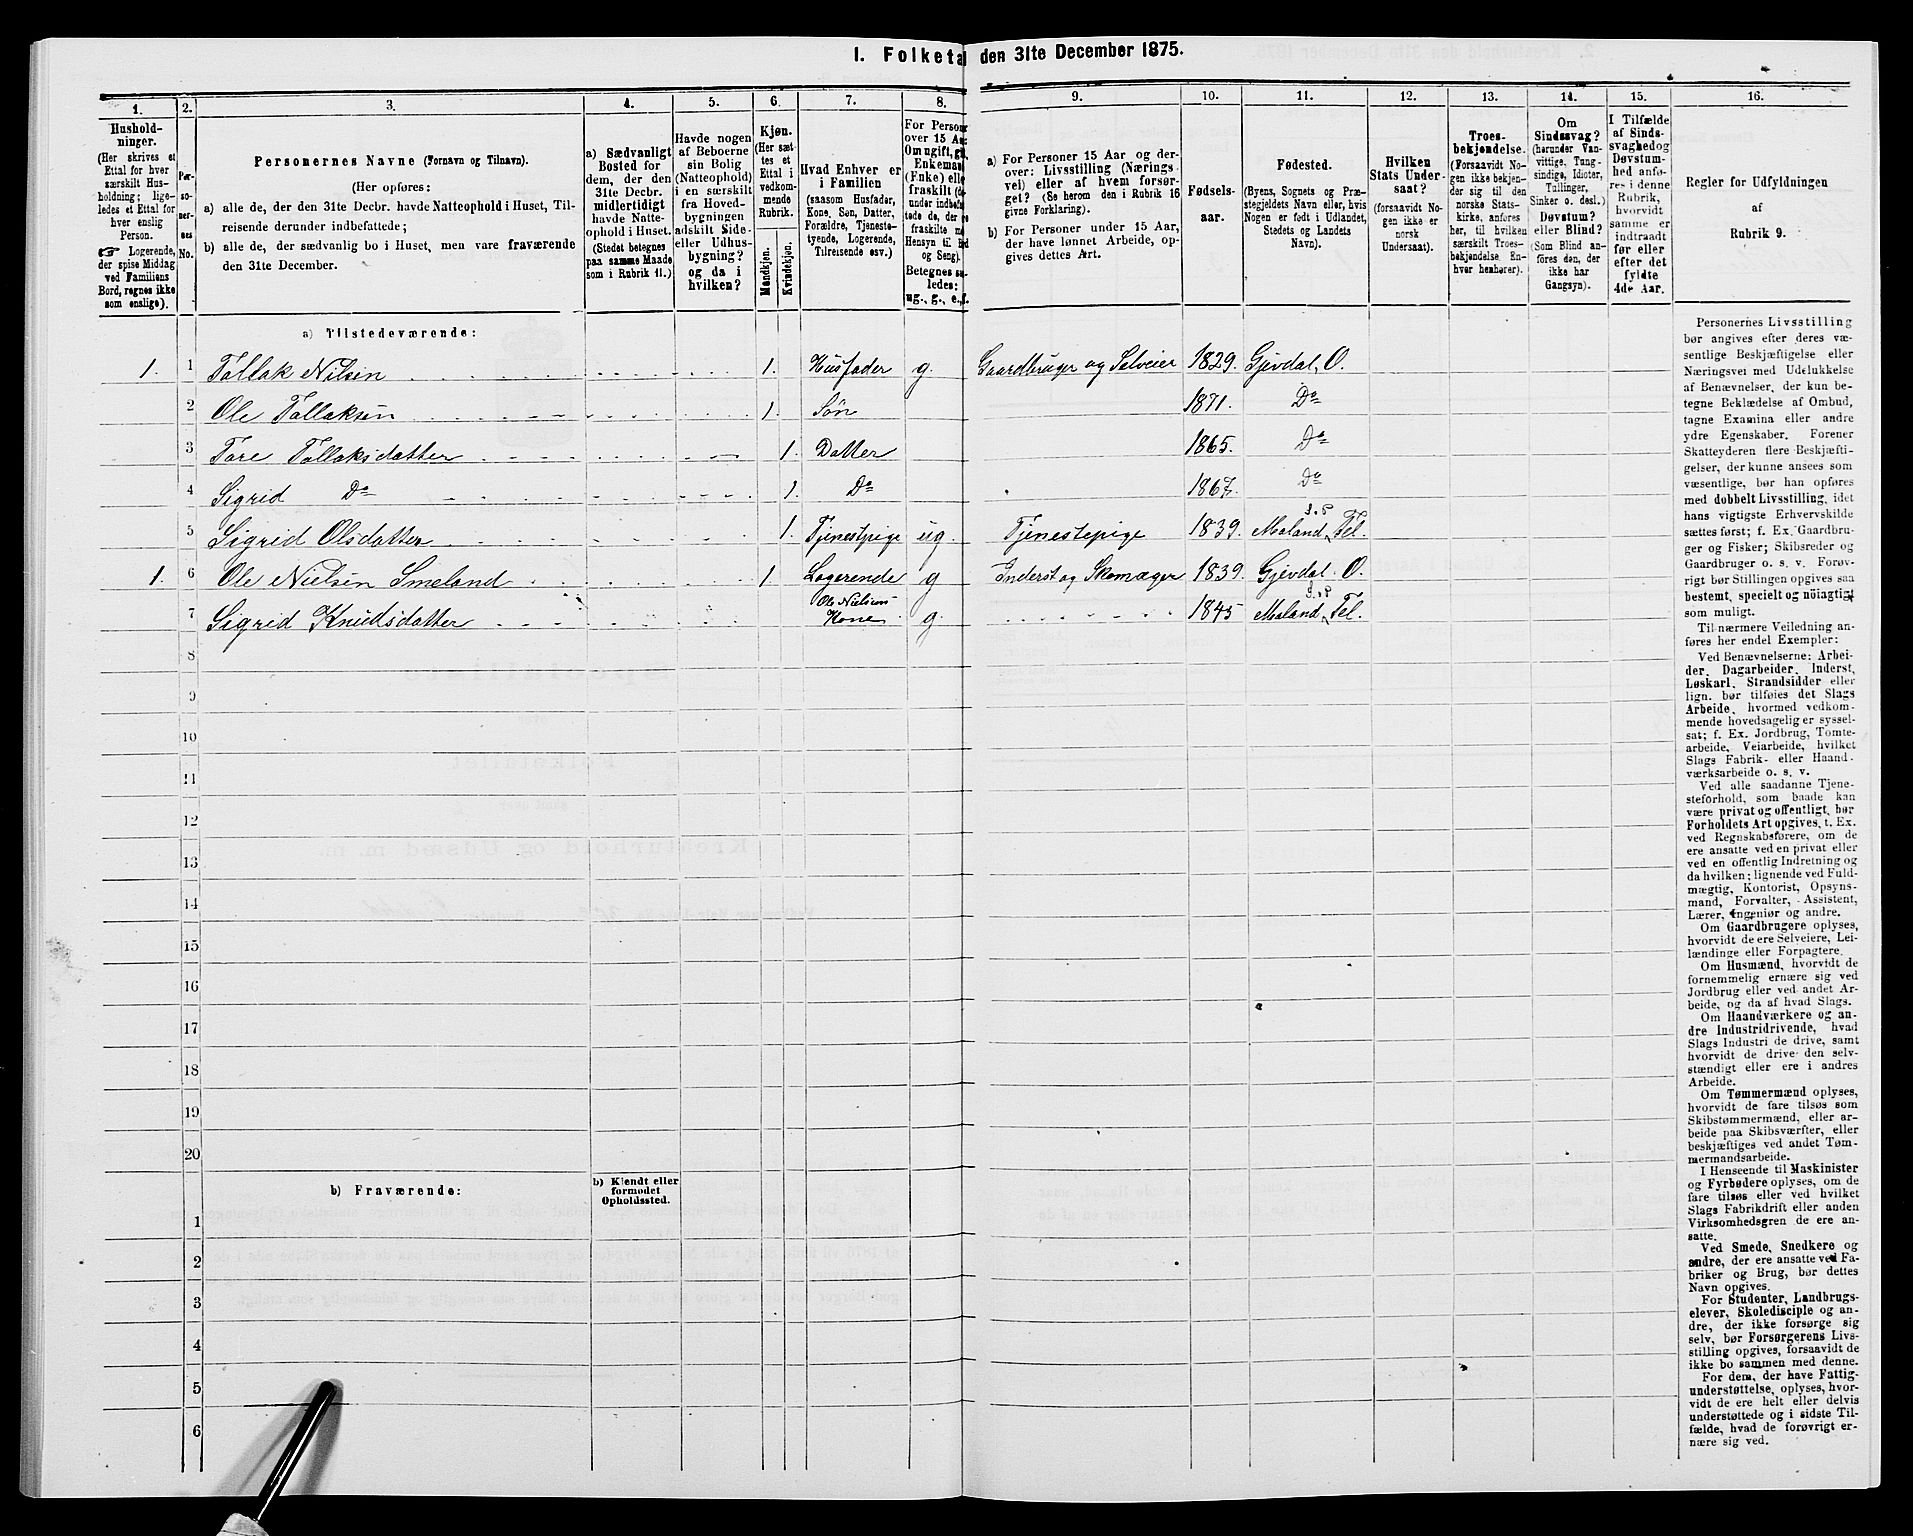 1. Folketal den 31te December 1875.
1. 2. 3. 4. 5. 6. 7. 8. 9. 10. 11. 12. 13. 14. 15. 16.
Hushold-
ninger.
(Her skrives et
Ettal for hver
særskilt Hus-
holdning; lige-
ledes et Ettal for
hver enslig
Person.
☞ Logerende,
der spise Middag
ved Familiens
Bord, regnes ikke
som enslige).
Per-
so-
ner-
nes
No.
Personernes Navne (Fornavn og Tilnavn).
(Her opføres:
a) alle de, der den 31te Decbr. havde Natteophold i Huset, Til-
reisende derunder indbefattede;
b) alle de, der sædvanlig bo i Huset, men vare fraværende
den 31te December.
a) Sædvanligt
Bosted for
dem, der den
31te Decbr.
midlertidigt
havde Natte-
ophold i Huset.
(Stedet betegnes
paa samme Maade
som i Rubrik 11.)
Havde nogen
af Beboerne
sin Bolig
(Natteophold)
i en særskilt
fra Hoved-
bygningen
adskilt Side-
eller Udhus-
bygning?
og da i
hvilken?
Kjøn.
(Her sæt-
tes et
Ettal i
vedkom-
mende
Rubrik.
Mandkjøn.
Kvindekjøn.
Hvad Enhver er
i Familien
(saasom Husfader,
Kone, Søn, Datter,
Forældre, Tjeneste-
tyende, Logerende,
Tilreisende osv.)
For Person
over 15 Aa
Om ugift, gi
Enkeman
(Enke) elle
fraskilt (de
under indbefa
tede de, der e
fraskilte me
Hensyn til B
og Seng).
Betegnes sa
ledes:
ug., g., e., f.
a) For Personer 15 Aar og der-
over: Livsstilling (Nærings-
vei) eller af hvem forsør-
get? (Se herom den i Rubrik 16
givne Forklaring).
b) For Personer under 15 Aar,
der have lønnet Arbeide, op-
gives dettes Art.
Fødsels-
aar.
Fødested.
(Byens, Sognets og Præ-
stegjeldets Navn eller, hvis
Nogen er født i Udlandet,
Stedets og Landets
Navn).
Hvilken
Stats Under-
saat?
(forsaavidt No-
gen ikke er
norsk
Undersaat).
Troes-
bekjendelse.
(Forsaavidt No-
gen ikke bekjen-
der sig til den
norske Stats-
kirke, anføres
her, til hvilken
særskilt Troes-
bekjendelse. En-
hver henhører).
Om
Sindssvag?
(herunder Van-
vittige, Tung-
sindige, Idioter,
Tullinger,
Sinker o. desl.)
Døvstum?
eller Blind?
(Som Blind an-
føres den, der
ikke har
Gangsyn).
I Tilfælde
af Sinds-
svaghed og
Døvstum-
hed anfø-
res i denne
Rubrik,
hvorvidt
samme er
indtraadt
før eller
efter det
fyldte
4de Aar.
Regler for Udfyldningen
af
Rubrik 9.
a) Tilstedeværende:
1. 1 Tollak Nilsen 1. Husfader g. Gaardbruger og Selveier 1829. Gjevdal, O.
2 Ole Tollaksen 1. Søn 1871. Do
3 Tore Tollaksdatter 1. Datter 1865. Do
4 Sigrid Do 1. Do 1867. Do
5 Sigrid Olsdatter 1. Tjenestpige ug. Tjenestepige 1839. Moland S.P Tel.
1. 6 Ole Nielsen Smeland 1. Logerende g Inderst og Skomager 1839. Gjevdal. O.
7 Sigrid Knudsdatter Ole Nielsens Kone g. 1845 Moland S.P Tel.
8
9
10
11
12
13
14
15
16
17
18
19
20
b) Fraværende:
b) Kjendt eller
formodet
Opholdssted.
1
2
3
4
5
6
Personernes Livsstilling
bør angives efter deres væ-
sentlige Beskjæftigelse eller
Næringsvei med Udelukkelse
af Benævnelser, der kun be-
tegne Beklædelse af Ombud,
tagne Examina eller andre
ydre Egenskaber. Forener
Skatteyderen flere Beskjæfti-
gelser, der kunne ansees som
væsentlige, bør han opføres
med dobbelt Livsstilling, idet
hans vigtigste Erhvervskilde
sættes først; f. Ex. Gaardbru-
ger og Fisker; Skibsreder og
Gaardbruger o. s. v. Forøv-
rigt bør Stillingen opgives saa
bestemt, specielt og nöiagtigt
som muligt.
Til nærmere Veiledning an-
føres her endel Exempler:
Ved Benævnelserne: Arbei-
der, Dagarbeider, Inderst,
Løskarl, Strandsidder eller
lign. bør tilføies det Slags
Arbeide, hvormed vedkom-
mende hovedsagelig er syssel-
sat; f. Ex. Jordbrug, Tomte-
arbeide, Veiarbeide, hvilket
Slags Fabrik- eller Haand-
værksarbeide o. s. v.
Ved alle saadanne Tjene-
steforhold, som baade kan
være privat og offentligt, bør
Forholdets Art opgives, t. Ex.
ved Regnskabsførere, om de
ere ansatte ved en privat eller
ved en offentlig Indretning og
da hvilken; lignende ved Fuld-
mægtig, Kontorist, Opsyns-
mand, Forvalter, Assistent,
Lærer, Ingeniør og andre.
Om Gaardbrugere oplyses,
hvorvidt de ere Selveiere, Lei-
lændinge eller Forpagtere.
Om Husmænd, hvorvidt de
fornemmelig ernære sig ved
Jordbrug eller ved andet Ar-
beide, og da af hvad Slags.
Om Haandværkere og an-
dre Industridrivende, hvad
Slags Industri de drive, samt
hvorvidt de drive den selv-
stændigt eller ere i andres
Arbeide.
Om Tømmermænd oplyses,
hvorvidt de fare tilsøs som
Skibstømmermænd, eller ar-
beide paa Skibsværfter, eller
beskjæftiges ved andet Tøm-
mermandsarbeide.
I Henseende til Maskinister
og Fyrbødere oplyses, om de
fare tilsøs eller ved hvilket
Slags Fabrikdrift eller anden
Virksomhedsgren de ere an-
satte.
Ved Smede, Snedkere og
andre, der ere ansatte ved Fa-
briker og Brug, bør dettes
Navn opgives.
For Studenter, Landbrugs-
elever, Skoledisciple og an-
dre, der ikke forsørge sig
selv, bør Forsørgerens Livs-
stilling opgives, forsaavidt de
ikke bo sammen med denne.
For dem, der have Fattig-
understøttelse, oplyses, hvor-
vidt de ere helt eller delvis
understøttede og i sidste Til-
fælde, hvad de forøvrigt er-
nære sig ved.